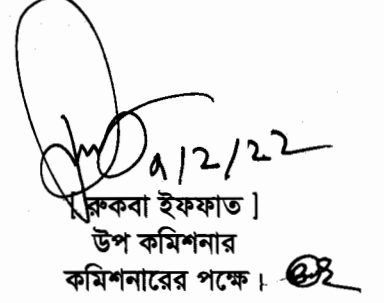 ৭/২/২২
[ রুকবা ইফফাত ]
উপ কমিশনার
কমিশনারের পক্ষে।